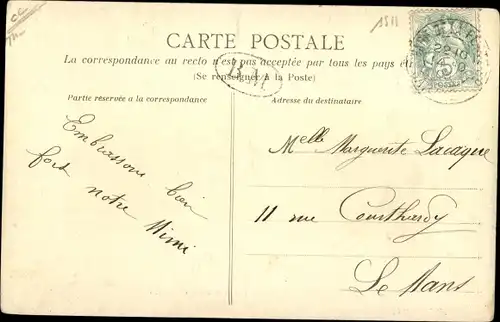 1511
CARTE POSTALE
La correspondance au recto n'est pas acceptée par tous les pays
(Se renseigner à la Poste)
Partie réservée à la correspondance
Adresse du destinataire
Embrassons bien
fort notre
Mimi
Melle Marguerite Lacaque
11 rue Courthardy
Le Mans